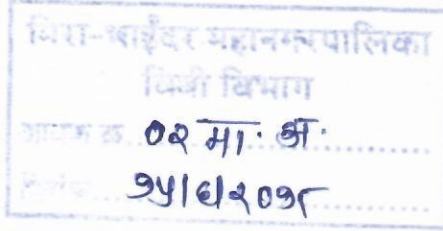 मिरा-भाईंदर महानगरपालिका
विधी विभाग
आवक क्र. ०२ मा. अ.
दिनांक १५/६/२०१८